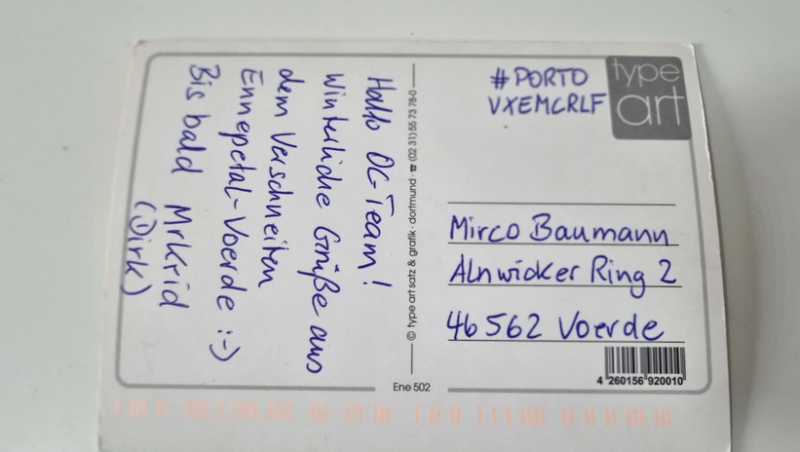 Hallo OC-Team!
Winterliche Grüße aus
dem verschneiten
Ennepetal-Voerde :-)
Bis bald MrKrid
(Dirk)
© type art satz & grafik · dortmund · ☎ (02 31) 55 73 78-0
#PORTO
VXEMCRLF
type
art
Mirco Baumann
Alnwicker Ring 2
46562 Voerde
4 260156 920010
Ene 502